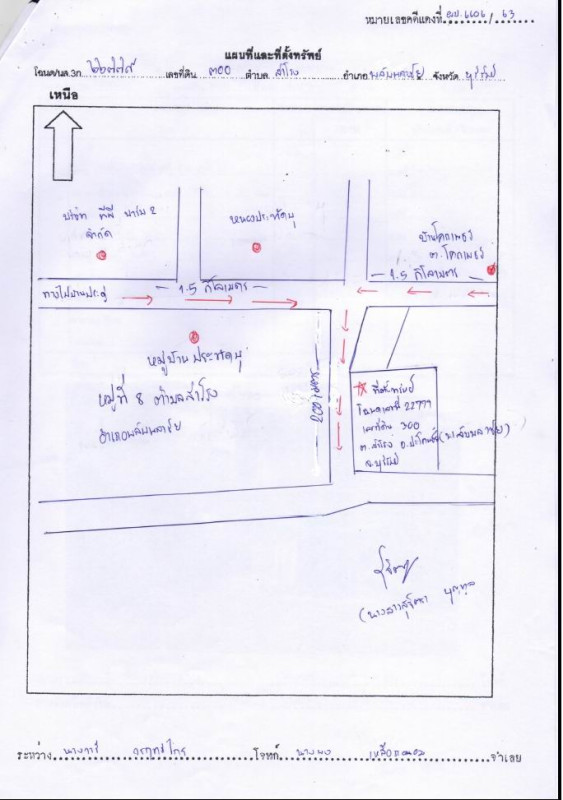 หมายเลขคดีแดงที่ ผบ. ๖๖๐๖ / ๖๓
แผนที่และที่ตั้งทรัพย์
โฉนด/นส.3ก. ๒๒๗๗๙ เลขที่ดิน ๓๐๐ ตำบล สำโรง อำเภอ พลับพลาชัย จังหวัด บุรีรัมย์
เหนือ
บริษัท
จำกัด
หนองประทัดบุ
บ้านโคกเพชร
ต. โคกเพชร
1.5 กิโลเมตร
1.5 กิโลเมตร
หมู่บ้าน ประทัดบุ
หมู่ที่ 8 ตำบลสำโรง
อำเภอพลับพลาชัย
200 เมตร
ที่ตั้งทรัพย์
โฉนดเลขที่ 22779
เลขที่ดิน 300
ต.สำโรง อ.ประโคนชัย (พลับพลาชัย)
จ.บุรีรัมย์
(นางสาวสุจิตรา
ระหว่าง โจทก์ จำเลย